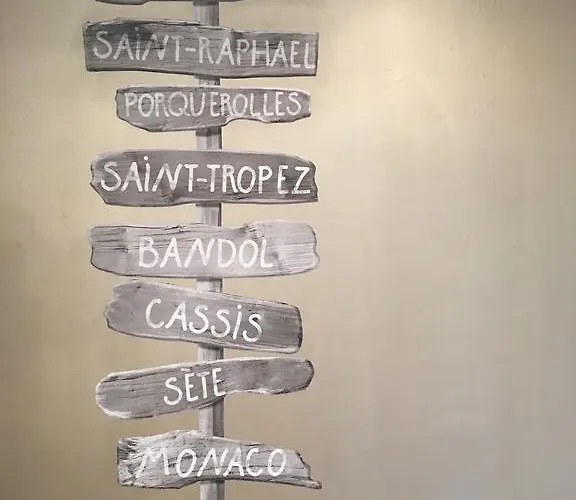 SAiNT-RAPHAEL
PORQUEROLLES
SAiNT-TROPEZ
BANDOL
CASSiS
SÈTE
MONACO